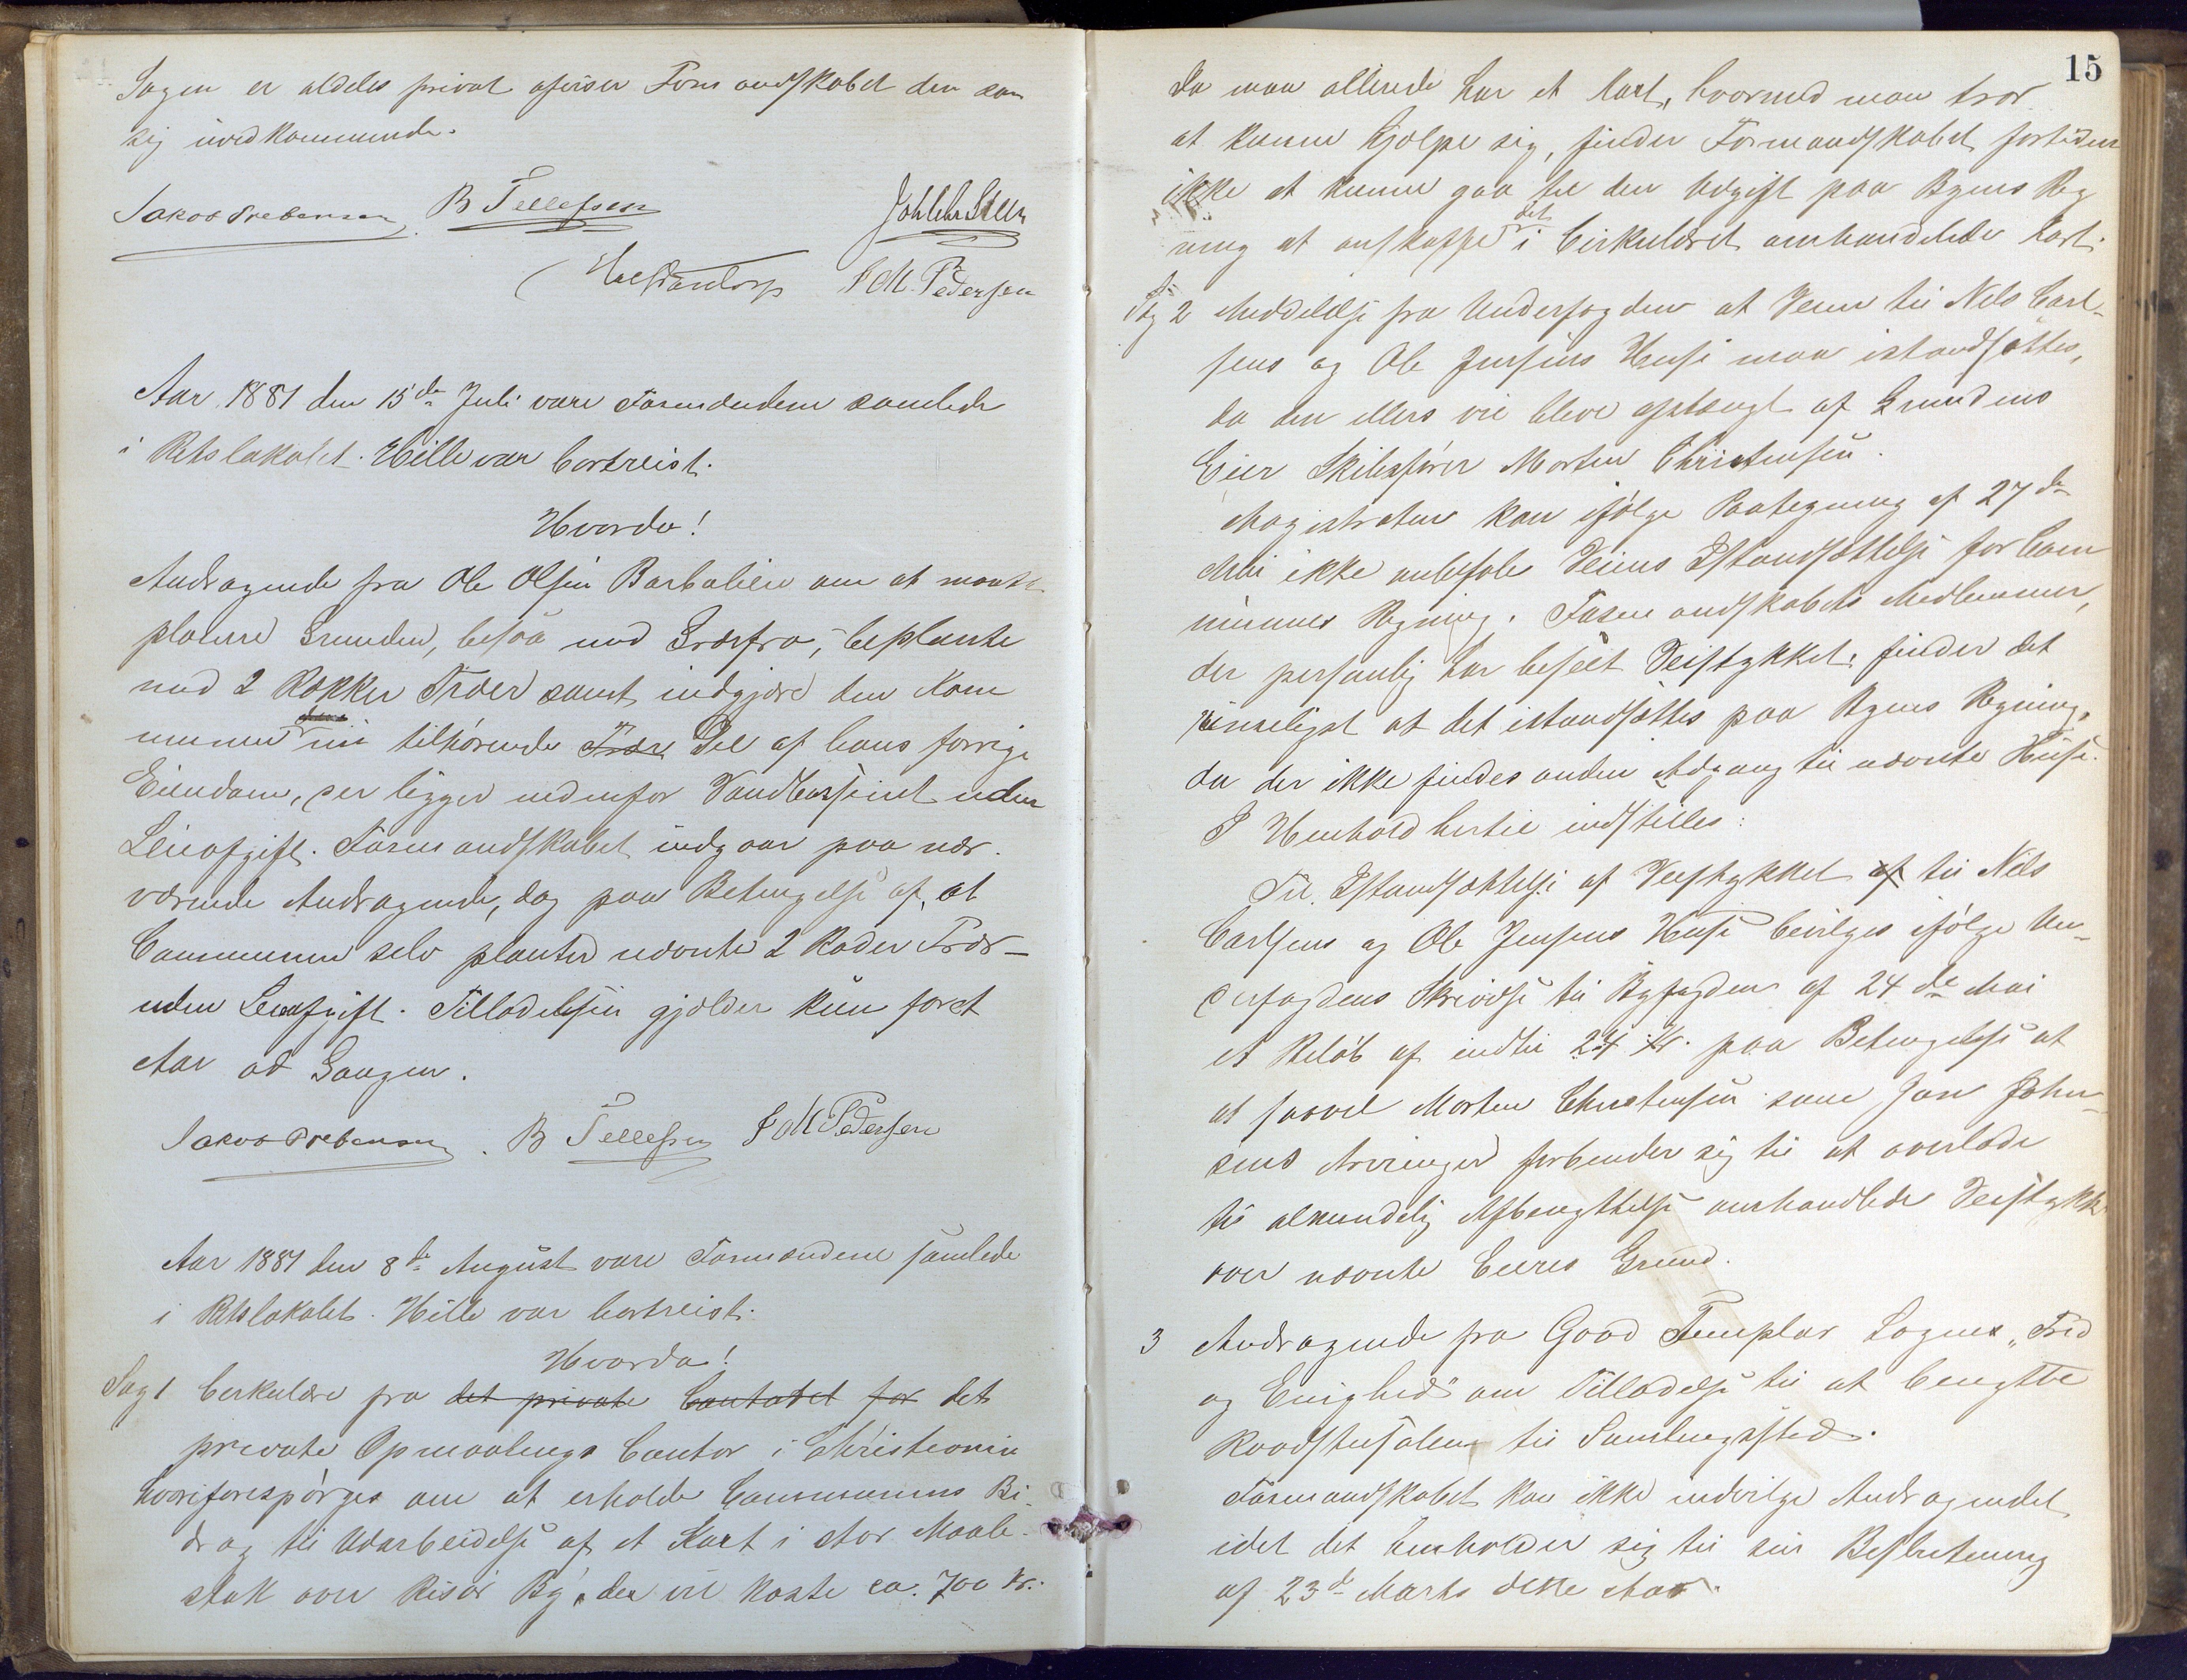 Sagen er aldeles privat afviser Formandskabet den som
sig uvedkommende.
Jakob Prebensen B Tellefsen Joh Chr Steen
J M. Pedersen
Aar 1881 den 15de Juli vare Formændene samlede
i Retslokalet. Hille var bortreist.
Hvorda!
Andragende fra Ole Olsen Barbulien om at maatte
planere Grunden, besaa med Græsfrø, beplante
med 2 Rækker Træer samt indgjære den Kom
munen nu tilhørende Træer Del af hans forrige
Eiendom, der ligger nedenfor Vandbassinet uden
Leieafgift. Formandskabet indgaar paa nær-
værende Andragende, dog paa Betingelse af, at
Communen selv planter nævnte 2 Rader Trær –
uden Leieafgift. Tilladelsen gjælder kun for et
Aar ad Gangen.
Jakob Prebensen. B Tellefsen J M Pedersen
Aar 1881 den 8de August vare Formændene samlede
i Retslokalet. Hille var bortreist.
Hvorda!
Sag 1 Cirkulære fra det private Contoret for det
private Opmaalings Contor i Christiania
hvori forespørges om at erholde Communens Bi-
drag til Udarbeidelse af et Kart i stor Maale-
stok over Risør By, der vil koste ca. 700 Kr.
15
Da man allerede har et Kart, hvormed man tror
at kunne hjælpe sig, finder Formandskabet fortiden
ikke at kunne gaa til den Udgift paa Byens Reg
ning at anskaffe det i Cirkulæret omhandlede Kart.
Sag 2 Meddelelse fra Underfogden at Veien til Nels Carl-
sens og Ole Jensens Huse maa istandsættes,
da den ellers vil blive afstængt af Grundens
Eier Skibsfører Morten Christensen.
Magistraten kan ifølge Paategning af 27de
Mai ikke anbefale Veiens Istandsættelse for Com
munens Regning. Formandskabets Medlemmer,
der personlig har beseet Veistykket, finder det
rimeligst at det istandsættes paa Byens Regning,
da der ikke findes anden Adgang til nævnte Huse.
I Henhold hertil indstilles:
Til Istandsættelse af Veistykket af til Nels
Carlsens og Ole Jensens Huse bevilges ifølge Un-
derfogdens Skrivelse til Byfogden af 24de Mai
et Beløb af indtil 24 Kr. paa Betingelse at
at saavel Morten Christensen som Jan John-
sens Arvinger forbinder sig til at overlade
til almindelig Afbenyttelse omhandlede Veistykke
over nævnte Eieres Grund.
3 Andragende fra Good Templar Logens „Fred
og Enighed" om Tilladelse til at benytte
Raadstusalen til Samlingssted.
Formandskabet kan ikke indvilge Andragendet
idet det henholder sig til sin Beslutning
af 23de Marts dette Aar.